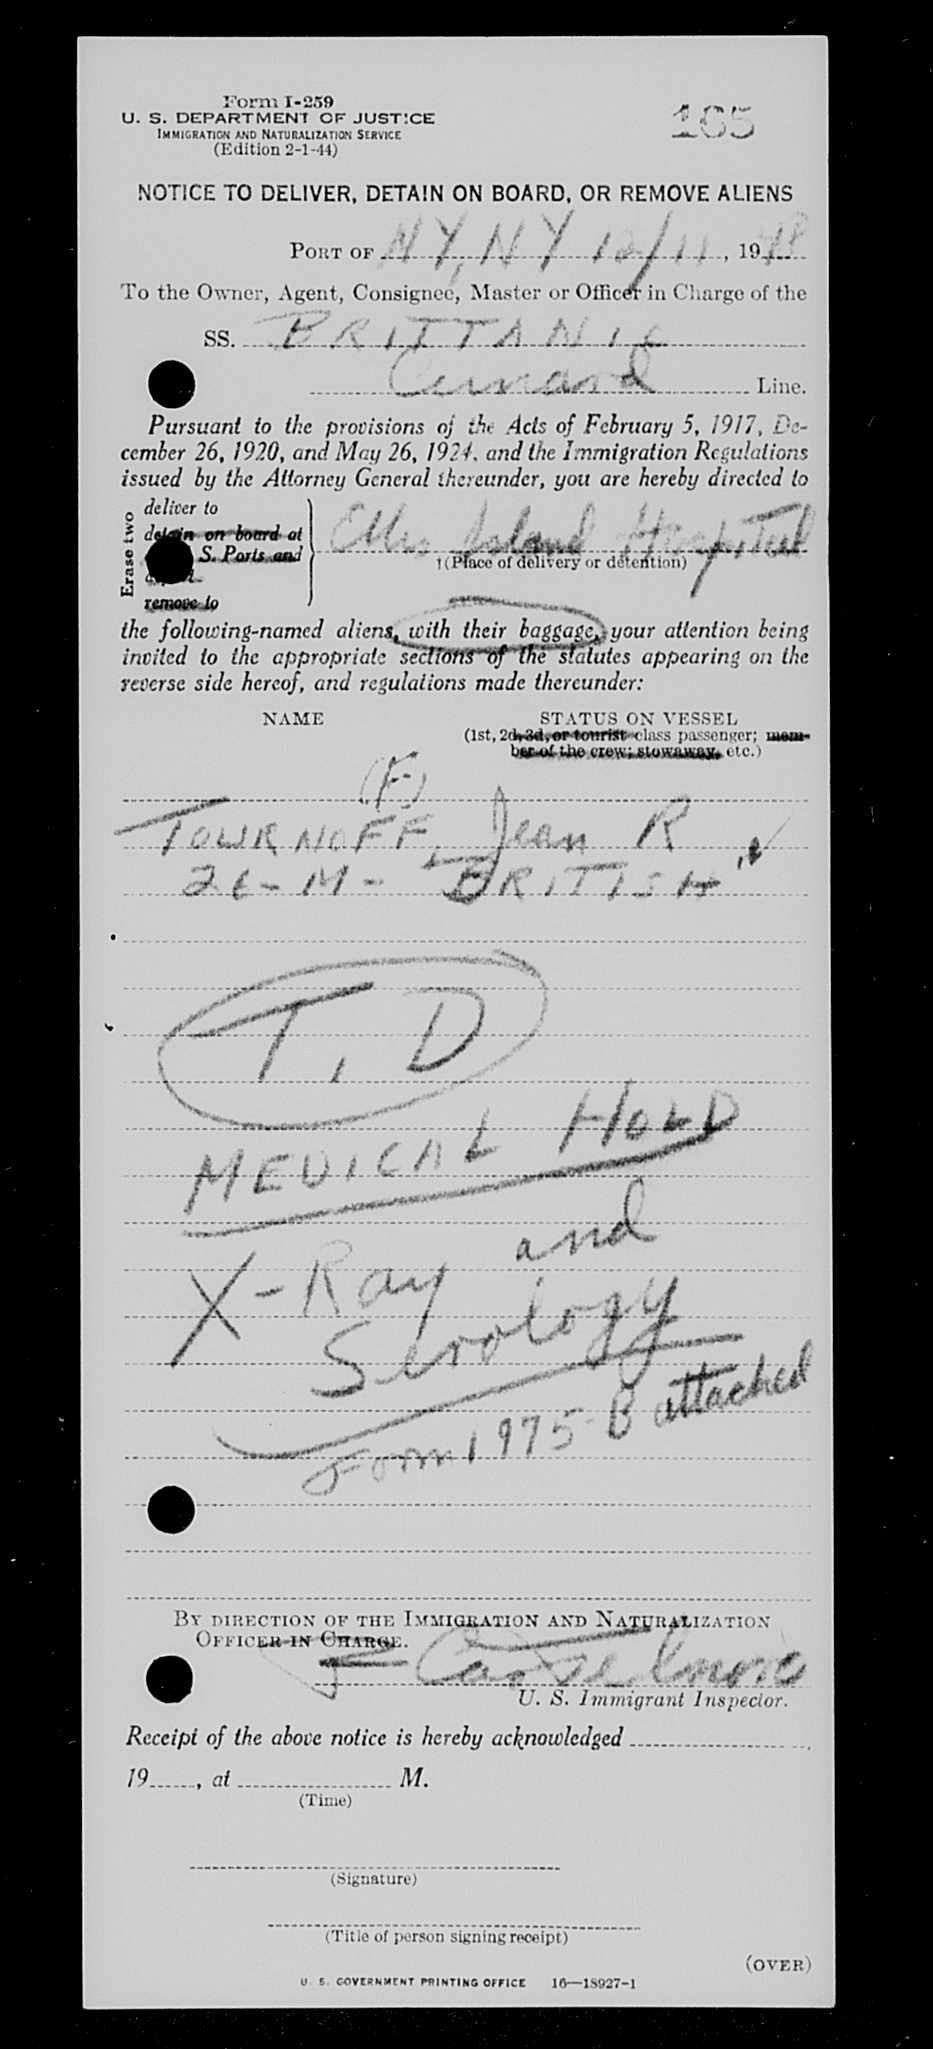 Form I-259
U. S. DEPARTMENT OF JUSTICE
IMMIGRATION AND NATURALIZATION SERVICE
(Edition 2-1-44)
165
NOTICE TO DELIVER, DETAIN ON BOARD, OR REMOVE ALIENS
PORT OF NY, NY 12/11, 1948
To the Owner, Agent, Consignee, Master or Officer in Charge of the
SS. BRITTANIC
Cunard Line.
Pursuant to the provisions of the Acts of February 5, 1917, De-
cember 26, 1920, and May 26, 1924, and the Immigration Regulations
issued by the Attorney General thereunder, you are hereby directed to
Erase two
deliver to
detain on board at
S. Ports and
remove to
Ellis Island Hospital
†(Place of delivery or detention)
the following-named aliens, with their baggage, your attention being
invited to the appropriate sections of the statutes appearing on the
reverse side hereof, and regulations made thereunder:
NAME STATUS ON VESSEL
(1st, 2d, 3d, or tourist class passenger; mem-
ber of the crew; stowaway, etc.)
(F)
TOURNOFF, Jean R
26-M-BRITISH
T, D
MEDICAL HOLD
X-Ray and
Serology
Form 1975-B attached
BY DIRECTION OF THE IMMIGRATION AND NATURALIZATION
OFFICER IN CHARGE.
U. S. Immigrant Inspector.
Receipt of the above notice is hereby acknowledged
19, at M.
(Time)
(Signature)
(Title of person signing receipt)
(OVER)
U. S. GOVERNMENT PRINTING OFFICE 16—18927-1